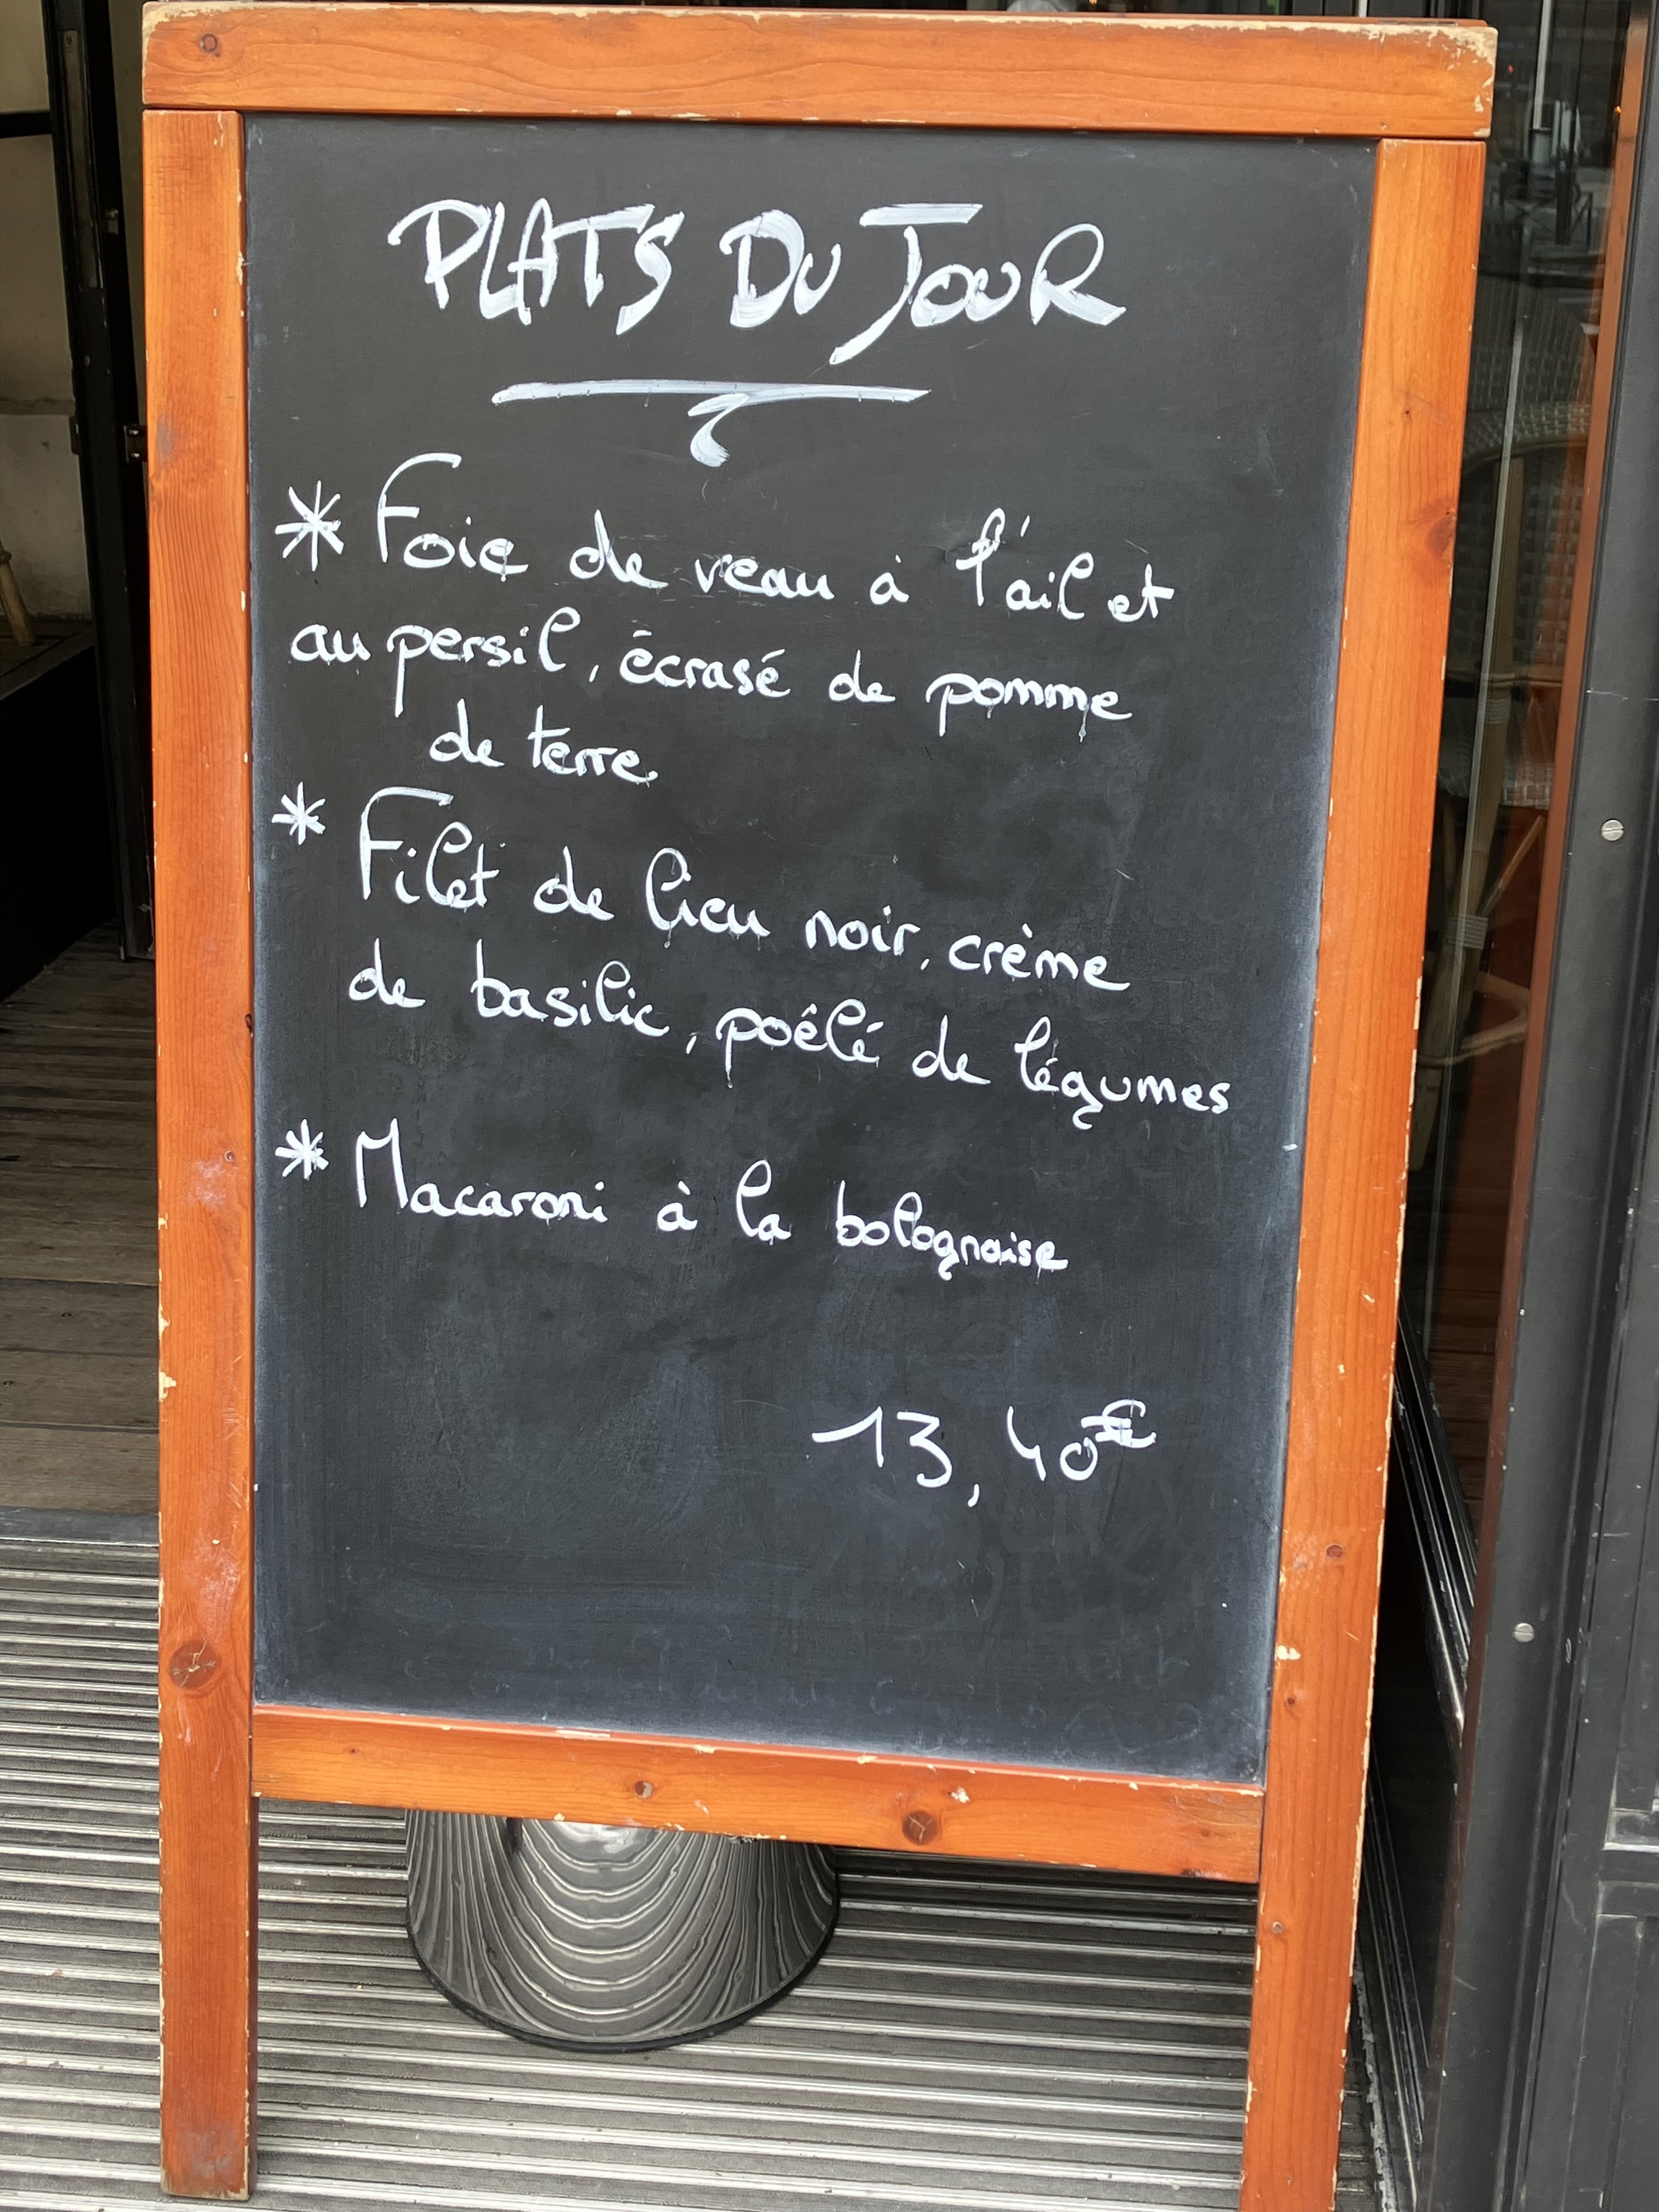 PLATS DU JOUR
* Foie de veau à l'ail et
au persil, écrasé de pomme
de terre
* Filet de lieu noir, crème
de basilic, poêlé de légumes
* Macaroni à la bolognaise
13,40€